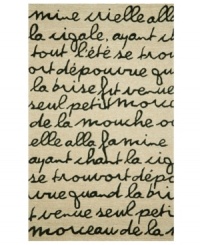 mine crielle alla
la cigale, ayant ch
tout l'été se trouv
ort dépourvue qua
la brise fut venue
seul petit morce
de la mouche o
elle alla famine
ayant chant la cig
se trouvort dépo
vue quand la bri
t venue seul peti
morceau de la m